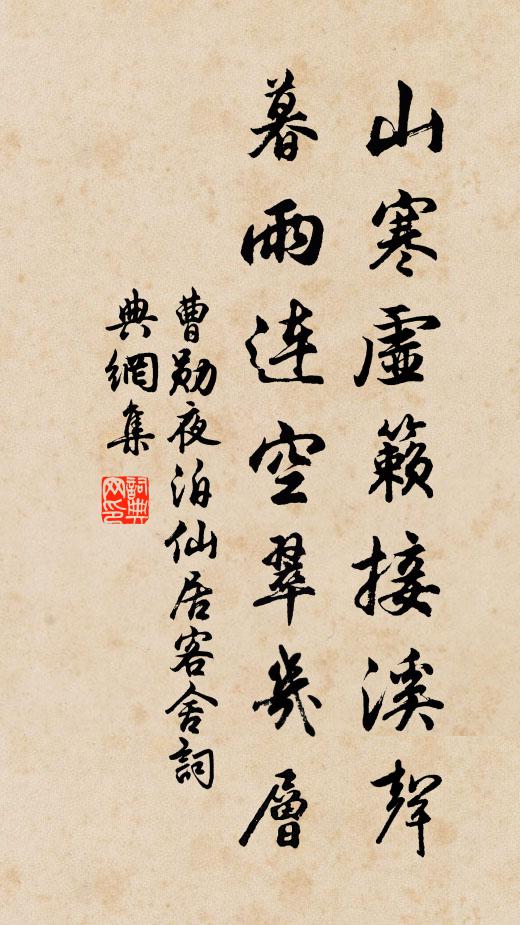 山寒虛籟接溪聲
暮雨連空翠幾層
曹勛夜泊仙居客舍詞
典網集
詞典网印